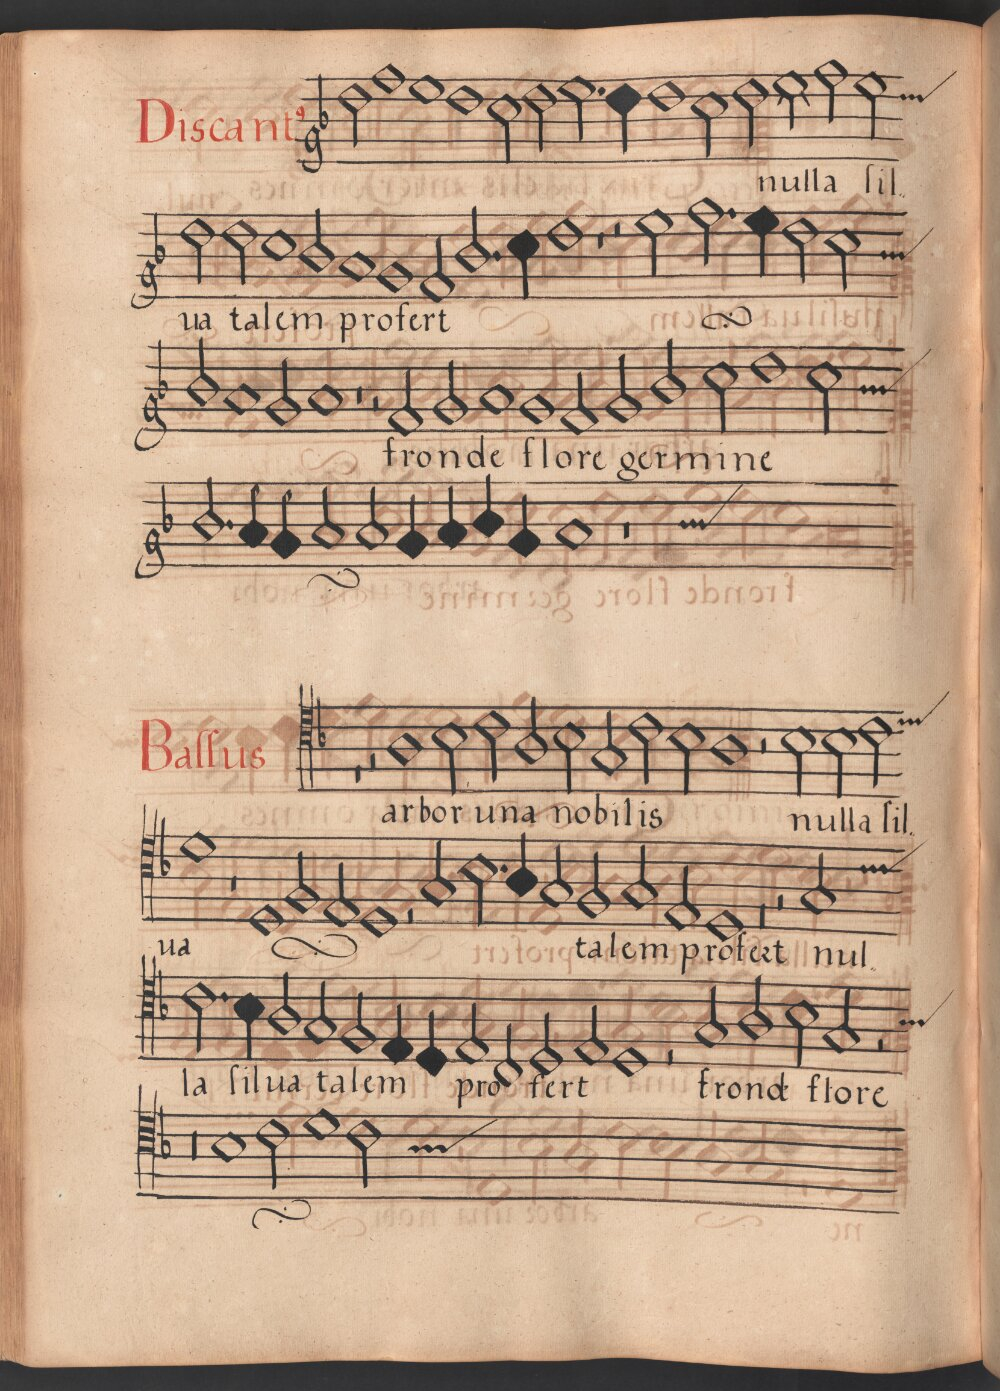 Discantꝰ
nulla sil.
ua talem profert
fronde flore germine
Bassus
arbor una nobilis nulla sil.
ua talem profert nul.
la silua talem profert fronde flore